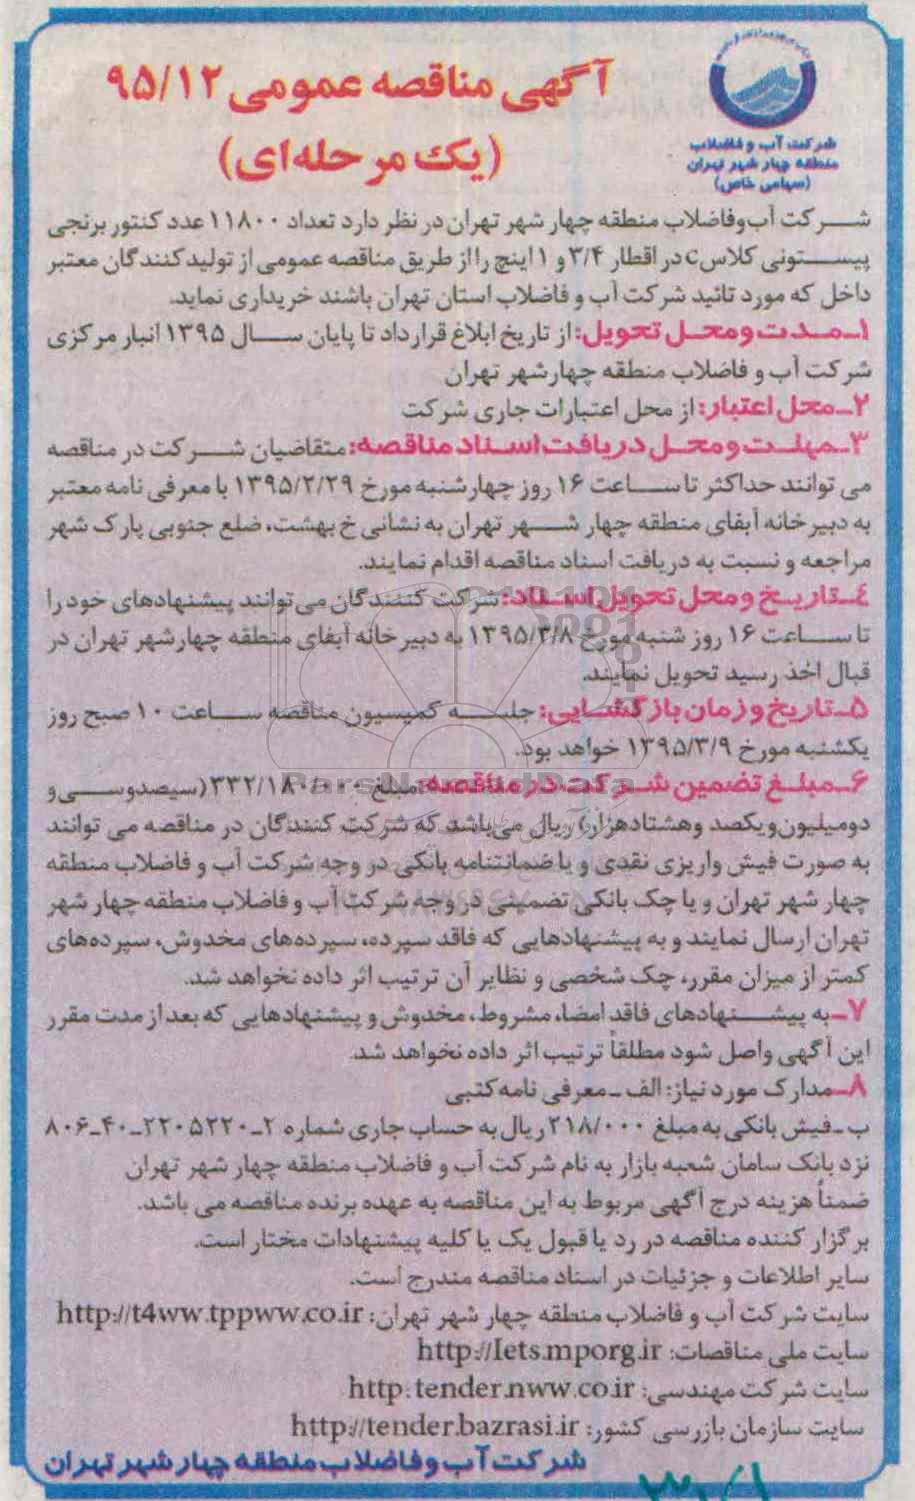 آگهی مناقصه عمومی ۹۵/۱۲
(یک مرحله‌ای)
شرکت آب و فاضلاب
منطقه چهار شهر تهران
(سهامی خاص)
شرکت آب‌وفاضلاب منطقه چهار شهر تهران در نظر دارد تعداد ۱۱۸۰۰ عدد کنتور برنجی
پیستونی کلاس C در اقطار ۳/۴ و ۱ اینچ را از طریق مناقصه عمومی از تولیدکنندگان معتبر
داخل که مورد تائید شرکت آب و فاضلاب استان تهران باشند خریداری نماید.
۱ـ مدت و محل تحویل: از تاریخ ابلاغ قرارداد تا پایان سال ۱۳۹۵ انبار مرکزی
شرکت آب و فاضلاب منطقه چهارشهر تهران
۲ـ محل اعتبار: از محل اعتبارات جاری شرکت
۳ـ مهلت و محل دریافت اسناد مناقصه: متقاضیان شرکت در مناقصه
می توانند حداکثر تا ساعت ۱۶ روز چهارشنبه مورخ ۱۳۹۵/۲/۲۹ با معرفی نامه معتبر
به دبیرخانه آبفای منطقه چهار شهر تهران به نشانی خ بهشت، ضلع جنوبی پارک شهر
مراجعه و نسبت به دریافت اسناد مناقصه اقدام نمایند.
٤ـ تاریخ و محل تحویل اسناد: شرکت کنندگان می‌توانند پیشنهادهای خود را
تا ساعت ۱۶ روز شنبه مورخ ۱۳۹۵/۳/۸ به دبیرخانه آبفای منطقه چهارشهر تهران در
قبال اخذ رسید تحویل نمایند.
۵ـ تاریخ و زمان بازگشایی: جلسه کمیسیون مناقصه ساعت ۱۰ صبح روز
یکشنبه مورخ ۱۳۹۵/۳/۹ خواهد بود.
۶ـ مبلغ تضمین شرکت در مناقصه: مبلغ ۳۳۲/۱۸۰/۰۰۰ (سیصدوسی‌و
دومیلیون‌ویکصد وهشتادهزار) ریال می‌باشد که شرکت کنندگان در مناقصه می توانند
به صورت فیش واریزی نقدی و یا ضمانتنامه بانکی در وجه شرکت آب و فاضلاب منطقه
چهار شهر تهران و یا چک بانکی تضمینی در وجه شرکت آب و فاضلاب منطقه چهار شهر
تهران ارسال نمایند و به پیشنهادهایی که فاقد سپرده، سپرده‌های مخدوش، سپرده‌های
کمتر از میزان مقرر، چک شخصی و نظایر آن ترتیب اثر داده نخواهد شد.
۷ـ به پیشنهادهای فاقد امضا، مشروط، مخدوش و پیشنهادهایی که بعد از مدت مقرر
این آگهی واصل شود مطلقاً ترتیب اثر داده نخواهد شد.
۸ـ مدارک مورد نیاز: الف ـ معرفی نامه کتبی
ب ـ فیش بانکی به مبلغ ۲۱۸/۰۰۰ ریال به حساب جاری شماره ۲ـ۲۲۰۵۲۲۰ـ۴۰ـ۸۰۶
نزد بانک سامان شعبه بازار به نام شرکت آب و فاضلاب منطقه چهار شهر تهران
ضمناً هزینه درج آگهی مربوط به این مناقصه به عهده برنده مناقصه می باشد.
برگزار کننده مناقصه در رد یا قبول یک یا کلیه پیشنهادات مختار است.
سایر اطلاعات و جزئیات در اسناد مناقصه مندرج است.
سایت شرکت آب و فاضلاب منطقه چهار شهر تهران: http://t4ww.tppww.co.ir
سایت ملی مناقصات: http://Iets.mporg.ir
سایت شرکت مهندسی: http:tender.nww.co.ir
سایت سازمان بازرسی کشور: http://tender.bazrasi.ir
شرکت آب و فاضلاب منطقه چهار شهر تهران
ParsNamadData